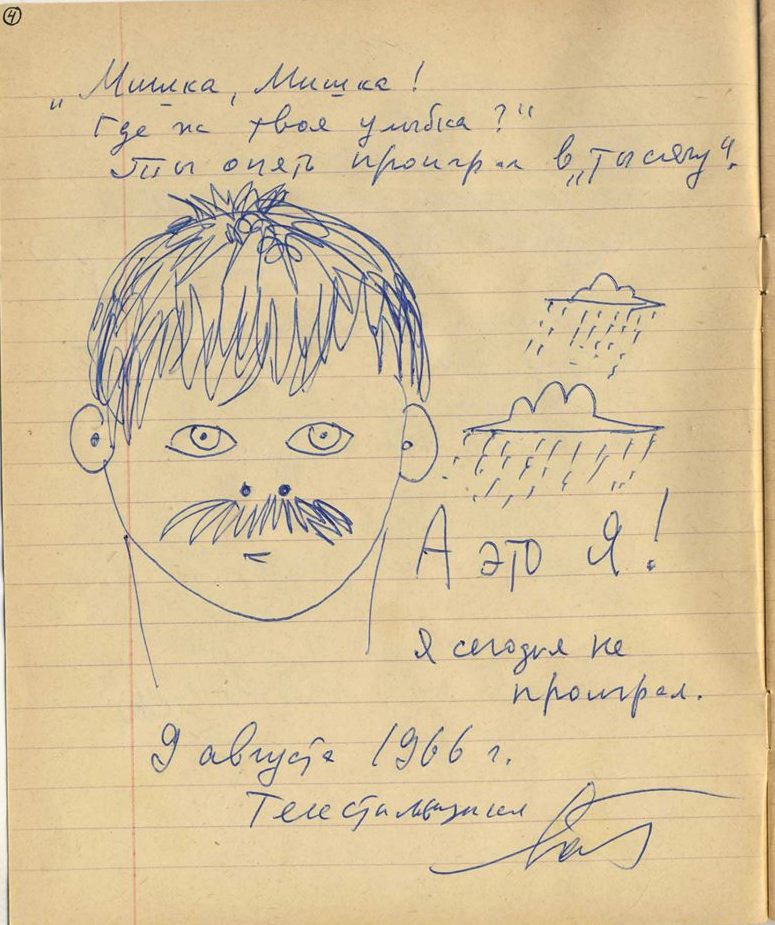 4
„Мишка, Мишка!
Где ж твоя улыбка?“
Ты опять проиграл в „тысячу“.
А это Я!
Я сегодня не
проиграл.
9 августа 1966 г.